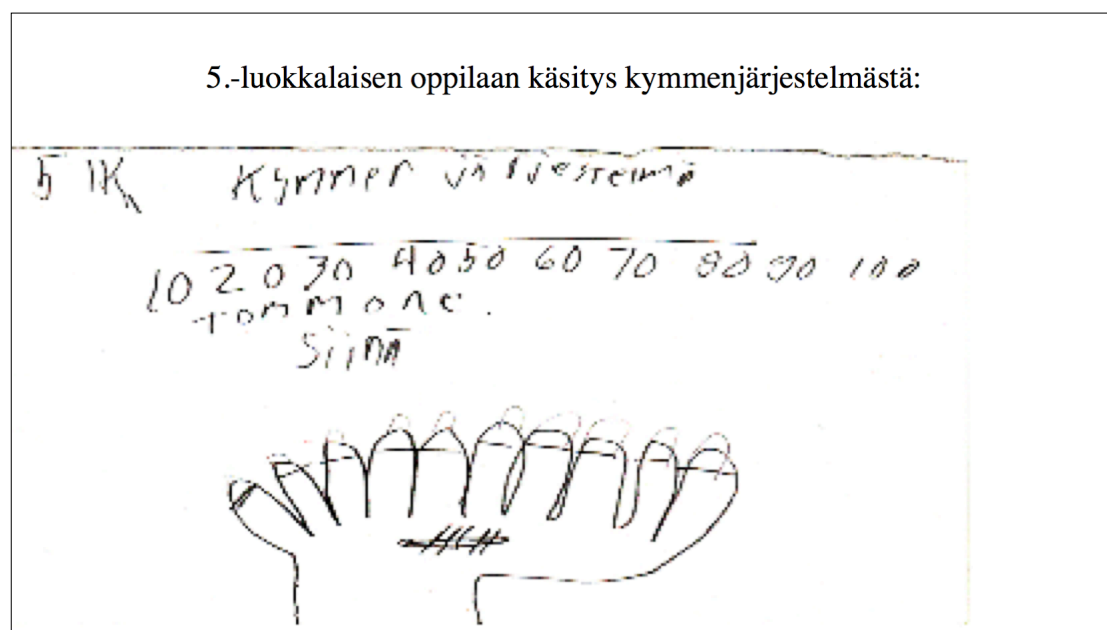 5.-luokkalaisen oppilaan käsitys kymmenjärjestelmästä:
5 lK Kymmen järjestelmä
10 20 30 40 50 60 70 80 90 100
tommone.
siinä